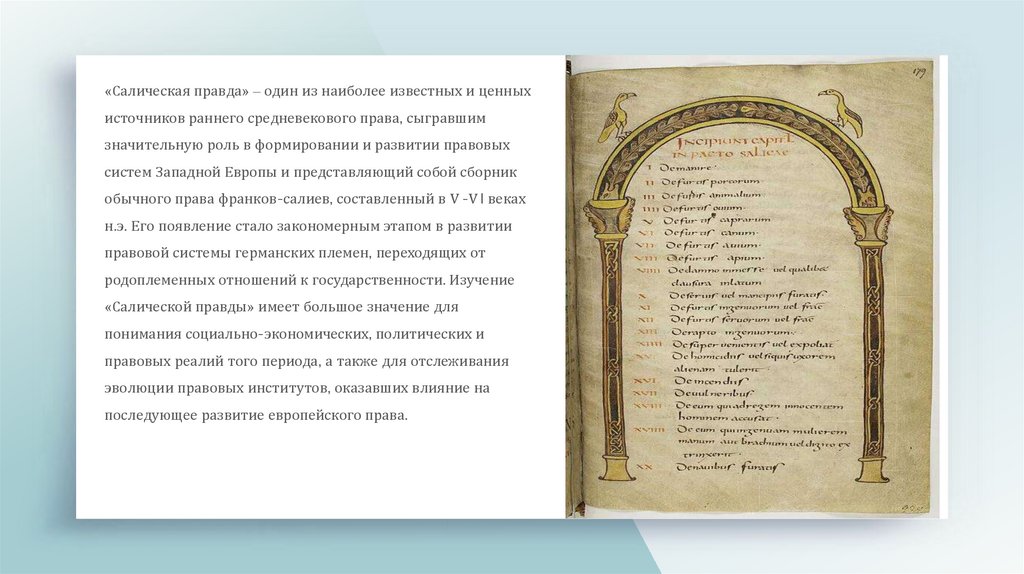 «Салическая правда» – один из наиболее известных и ценных
источников раннего средневекового права, сыгравшим
значительную роль в формировании и развитии правовых
систем Западной Европы и представляющий собой сборник
обычного права франков-салиев, составленный в V -VI веках
н.э. Его появление стало закономерным этапом в развитии
правовой системы германских племен, переходящих от
родоплеменных отношений к государственности. Изучение
«Салической правды» имеет большое значение для
понимания социально-экономических, политических и
правовых реалий того периода, а также для отслеживания
эволюции правовых институтов, оказавших влияние на
последующее развитие европейского права.
179
INCIPIUNT CAPITL
IN PACTO SALICAE
I De manire
II De furtis porcorum
III De furtis animalium
IIII De furtis ovium
V De furtis caprarum
VI De furtis canum
VII De furtis avium
VIII De furtis apium
VIIII De damno in messe vel qualibet
clausura inlatum
X De servis vel mancipiis furatis
XI De furtis ingenuorum vel
XII De furtis servorum vel
XIII De rapto ingenuorum
XIIII De superventis vel expoliat
XV De homicidiis vel si quis uxorem
alienam tulerit
XVI De incendiis
XVII De vulneribus
XVIII De eum qui ad regem innocentem
hominem accusat
XVIIII De eum qui ingenuam mulierem
manum aut brachium vel digito ex
trinxerit
XX De navibus furatis